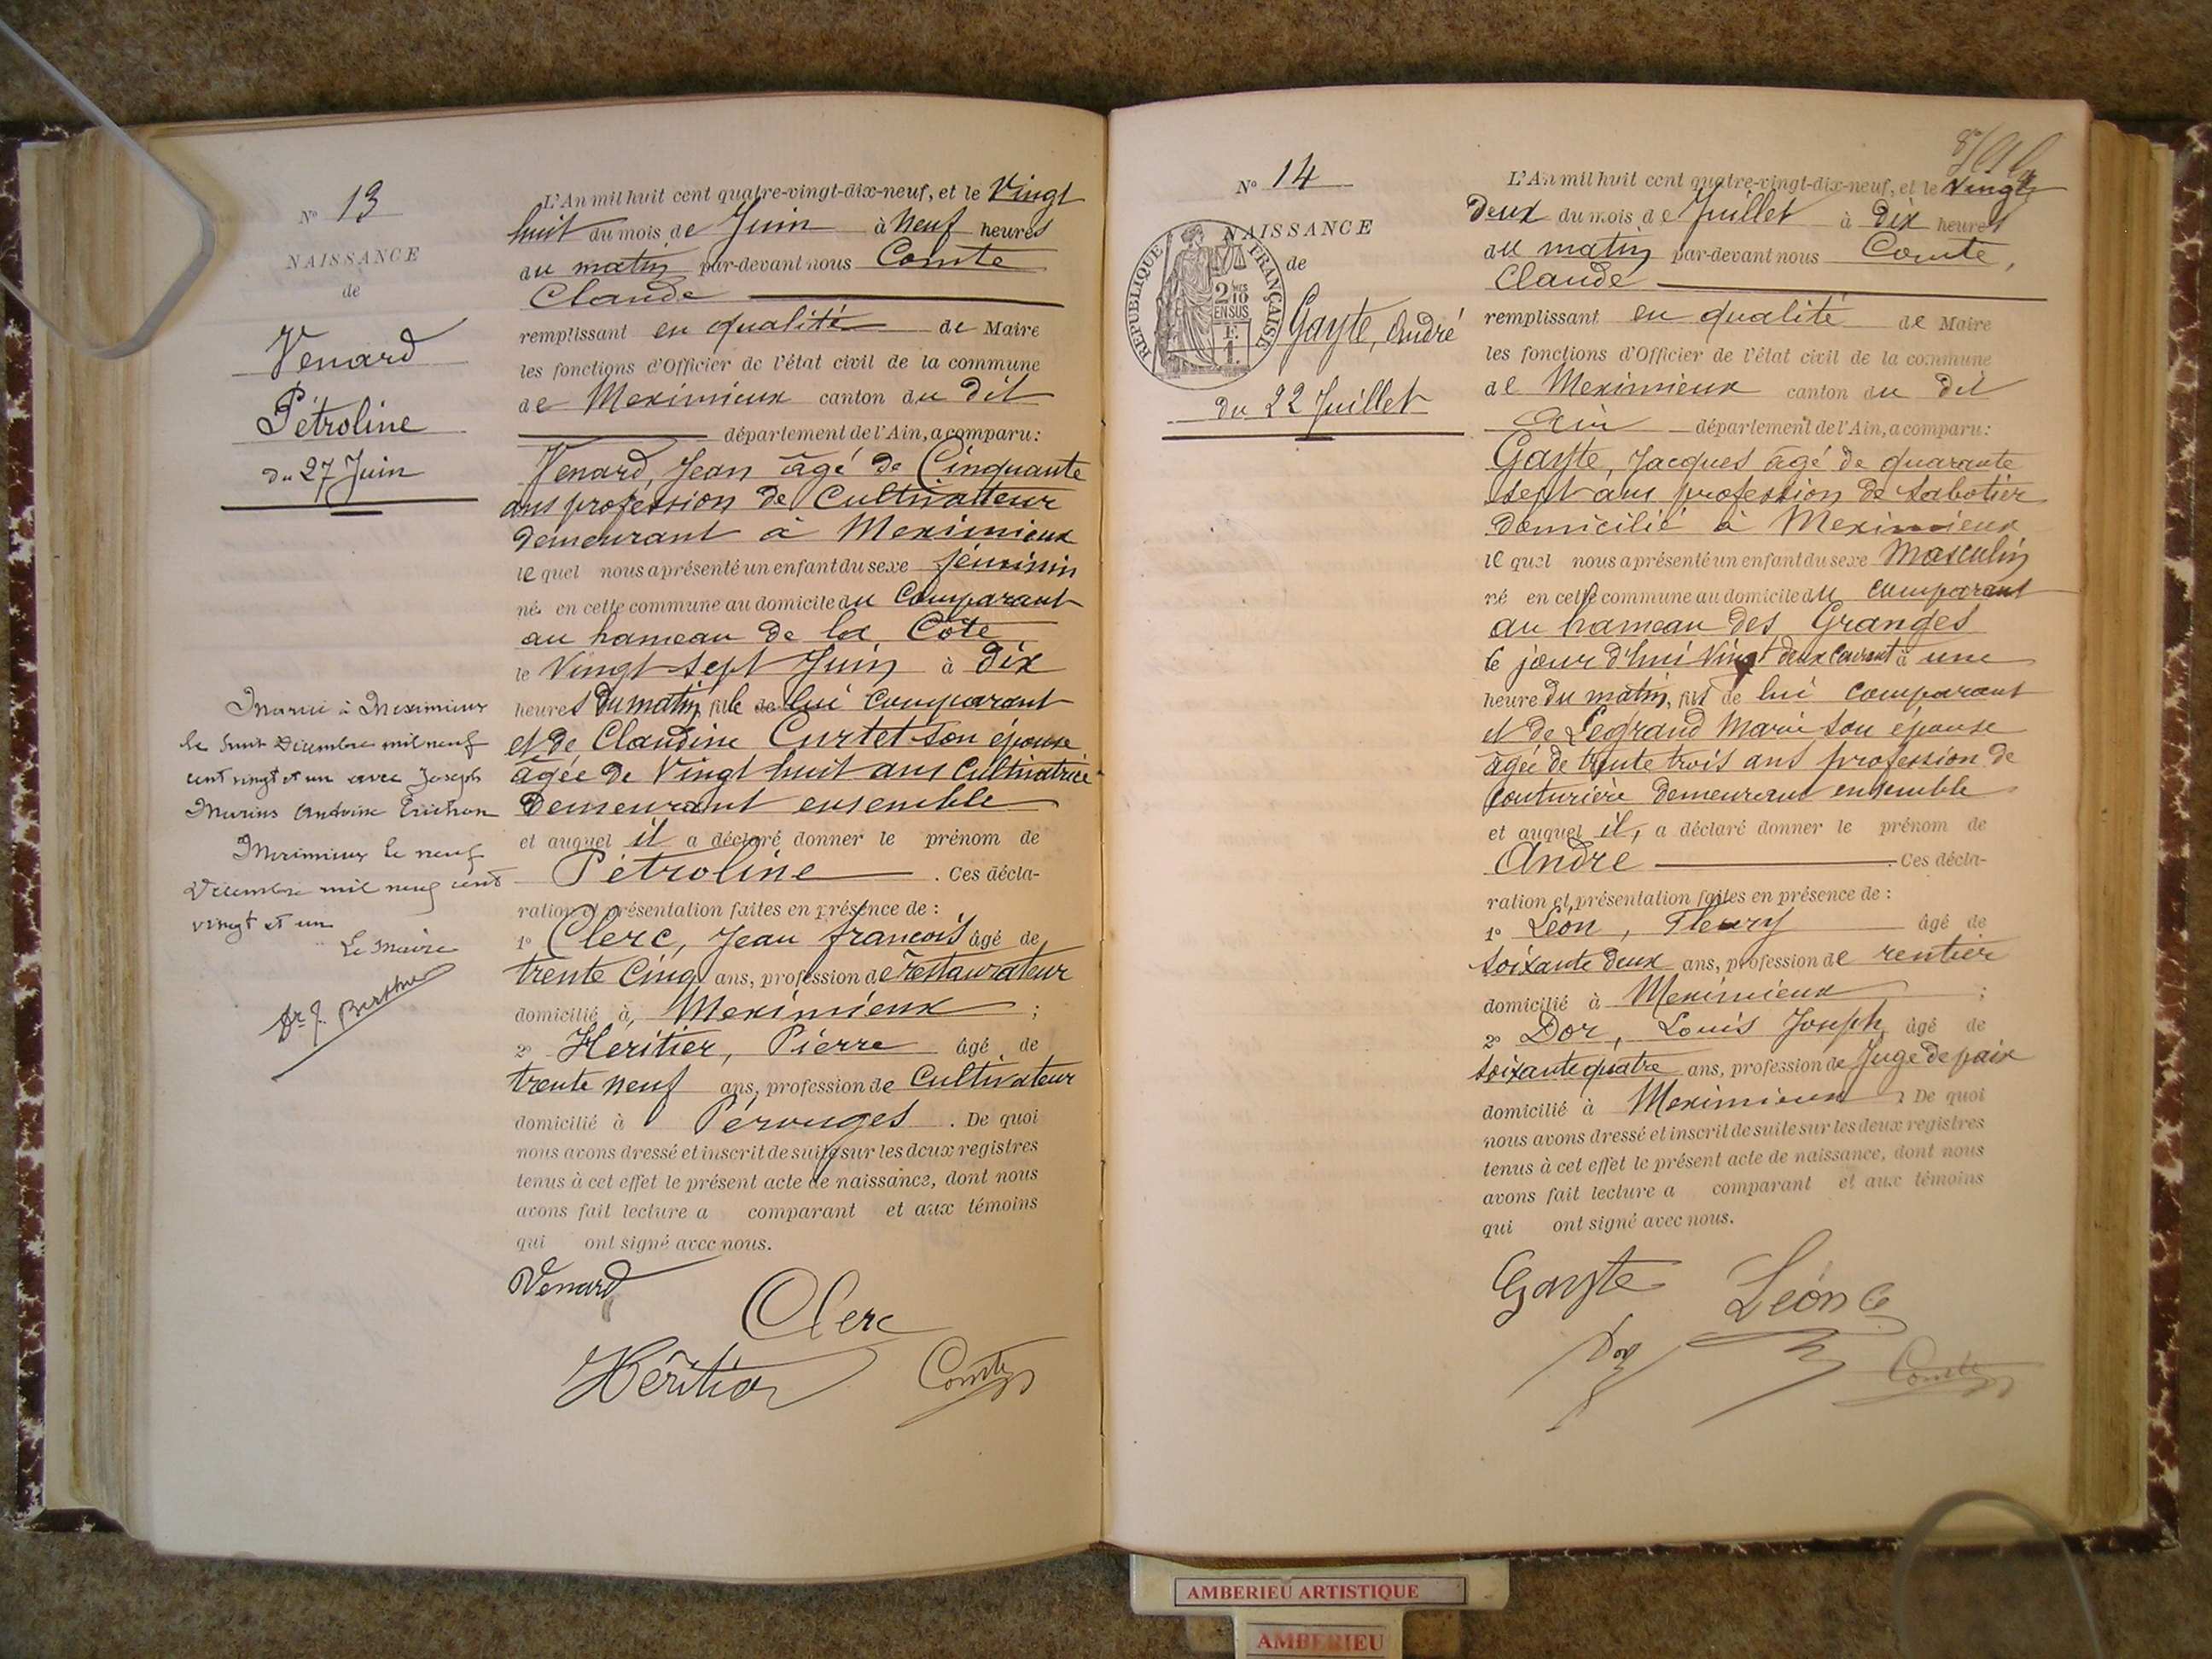 N° 13
NAISSANCE
de
Venard
Pétroline
du 27 Juin
Marié à Meximieux
le huit Décembre mil neuf
cent vingt et un avec Joseph
Marius Antoine Trichon
Meximieux le neuf
Décembre mil neuf cent
vingt et un
Le Maire
Dr J. Berthier
L'An mil huit cent quatre-vingt-dix-neuf, et le Vingt
huit du mois de Juin à Neuf heures
du matin par-devant nous Comte
Claude
remplissant en qualité de Maire
les fonctions d'Officier de l'état civil de la commune
de Meximieux canton du Dit
département de l'Ain, a comparu:
Venard, Jean âgé de Cinquante
ans profession de Cultivatteur
demeurant à Meximieux
lequel nous a présenté un enfant du sexe féminin
né en cette commune au domicile du Comparant
au hameau de la Côte
le Vingt sept Juin à Dix
heures du matin, fille de lui Comparant
et de Claudine Curtet son épouse
âgée de Vingt huit ans Cultivatrice
Demeurant ensemble
et auquel il a déclaré donner le prénom de
Pétroline . Ces décla-
ration et présentation faites en présence de :
1° Clerc, Jean françois âgé de
trente Cinq ans, profession de restaurateur
domicilié à Meximieux ;
2° Heritier, Pierre âgé de
trente neuf ans, profession de Cultivateur
domicilié à Pérouges . De quoi
nous avons dressé et inscrit de suite sur les deux registres
tenus à cet effet le présent acte de naissance, dont nous
avons fait lecture a comparant et aux témoins
qui ont signé avec nous.
Venard
Clerc
Héritier
Comte
N° 14
NAISSANCE
de
RÉPUBLIQUE FRANÇAISE
2/10 EN SUS
F. 1.
Gayte, André
du 22 Juillet
L'An mil huit cent quatre-vingt-dix-neuf, et le Vingt
Deux du mois de Juillet à Dix heures
du matin par-devant nous Comte,
Claude
remplissant en qualité de Maire
les fonctions d'Officier de l'état civil de la commune
de Meximieux canton du Dit
Ain département de l'Ain, a comparu:
Gayte, Jacques âgé de quarante
sept ans profession de Sabotier
Domicilié à Meximieux
lequel nous a présenté un enfant du sexe Masculin
né en cette commune au domicile du comparant
au hameau des Granges
le jour d'hui Vingt deux courant à une
heure du matin, fils de lui comparant
et de Legrand Marie son épouse
âgée de trente trois ans profession de
couturière demeurant ensemble
et auquel il, a déclaré donner le prénom de
André . Ces décla-
ration et présentation faites en présence de :
1° Léon, Fleury âgé de
soixante deux ans, profession de rentier
domicilié à Meximieux ;
2° Dor, Louis Joseph, âgé de
soixante quatre ans, profession de Juge de paix
domicilié à Meximieux . De quoi
nous avons dressé et inscrit de suite sur les deux registres
tenus à cet effet le présent acte de naissance, dont nous
avons fait lecture a comparant et aux témoins
qui ont signé avec nous.
Gayte
Léon
Dor
Comte
AMBERIEU ARTISTIQUE
AMBERIEU